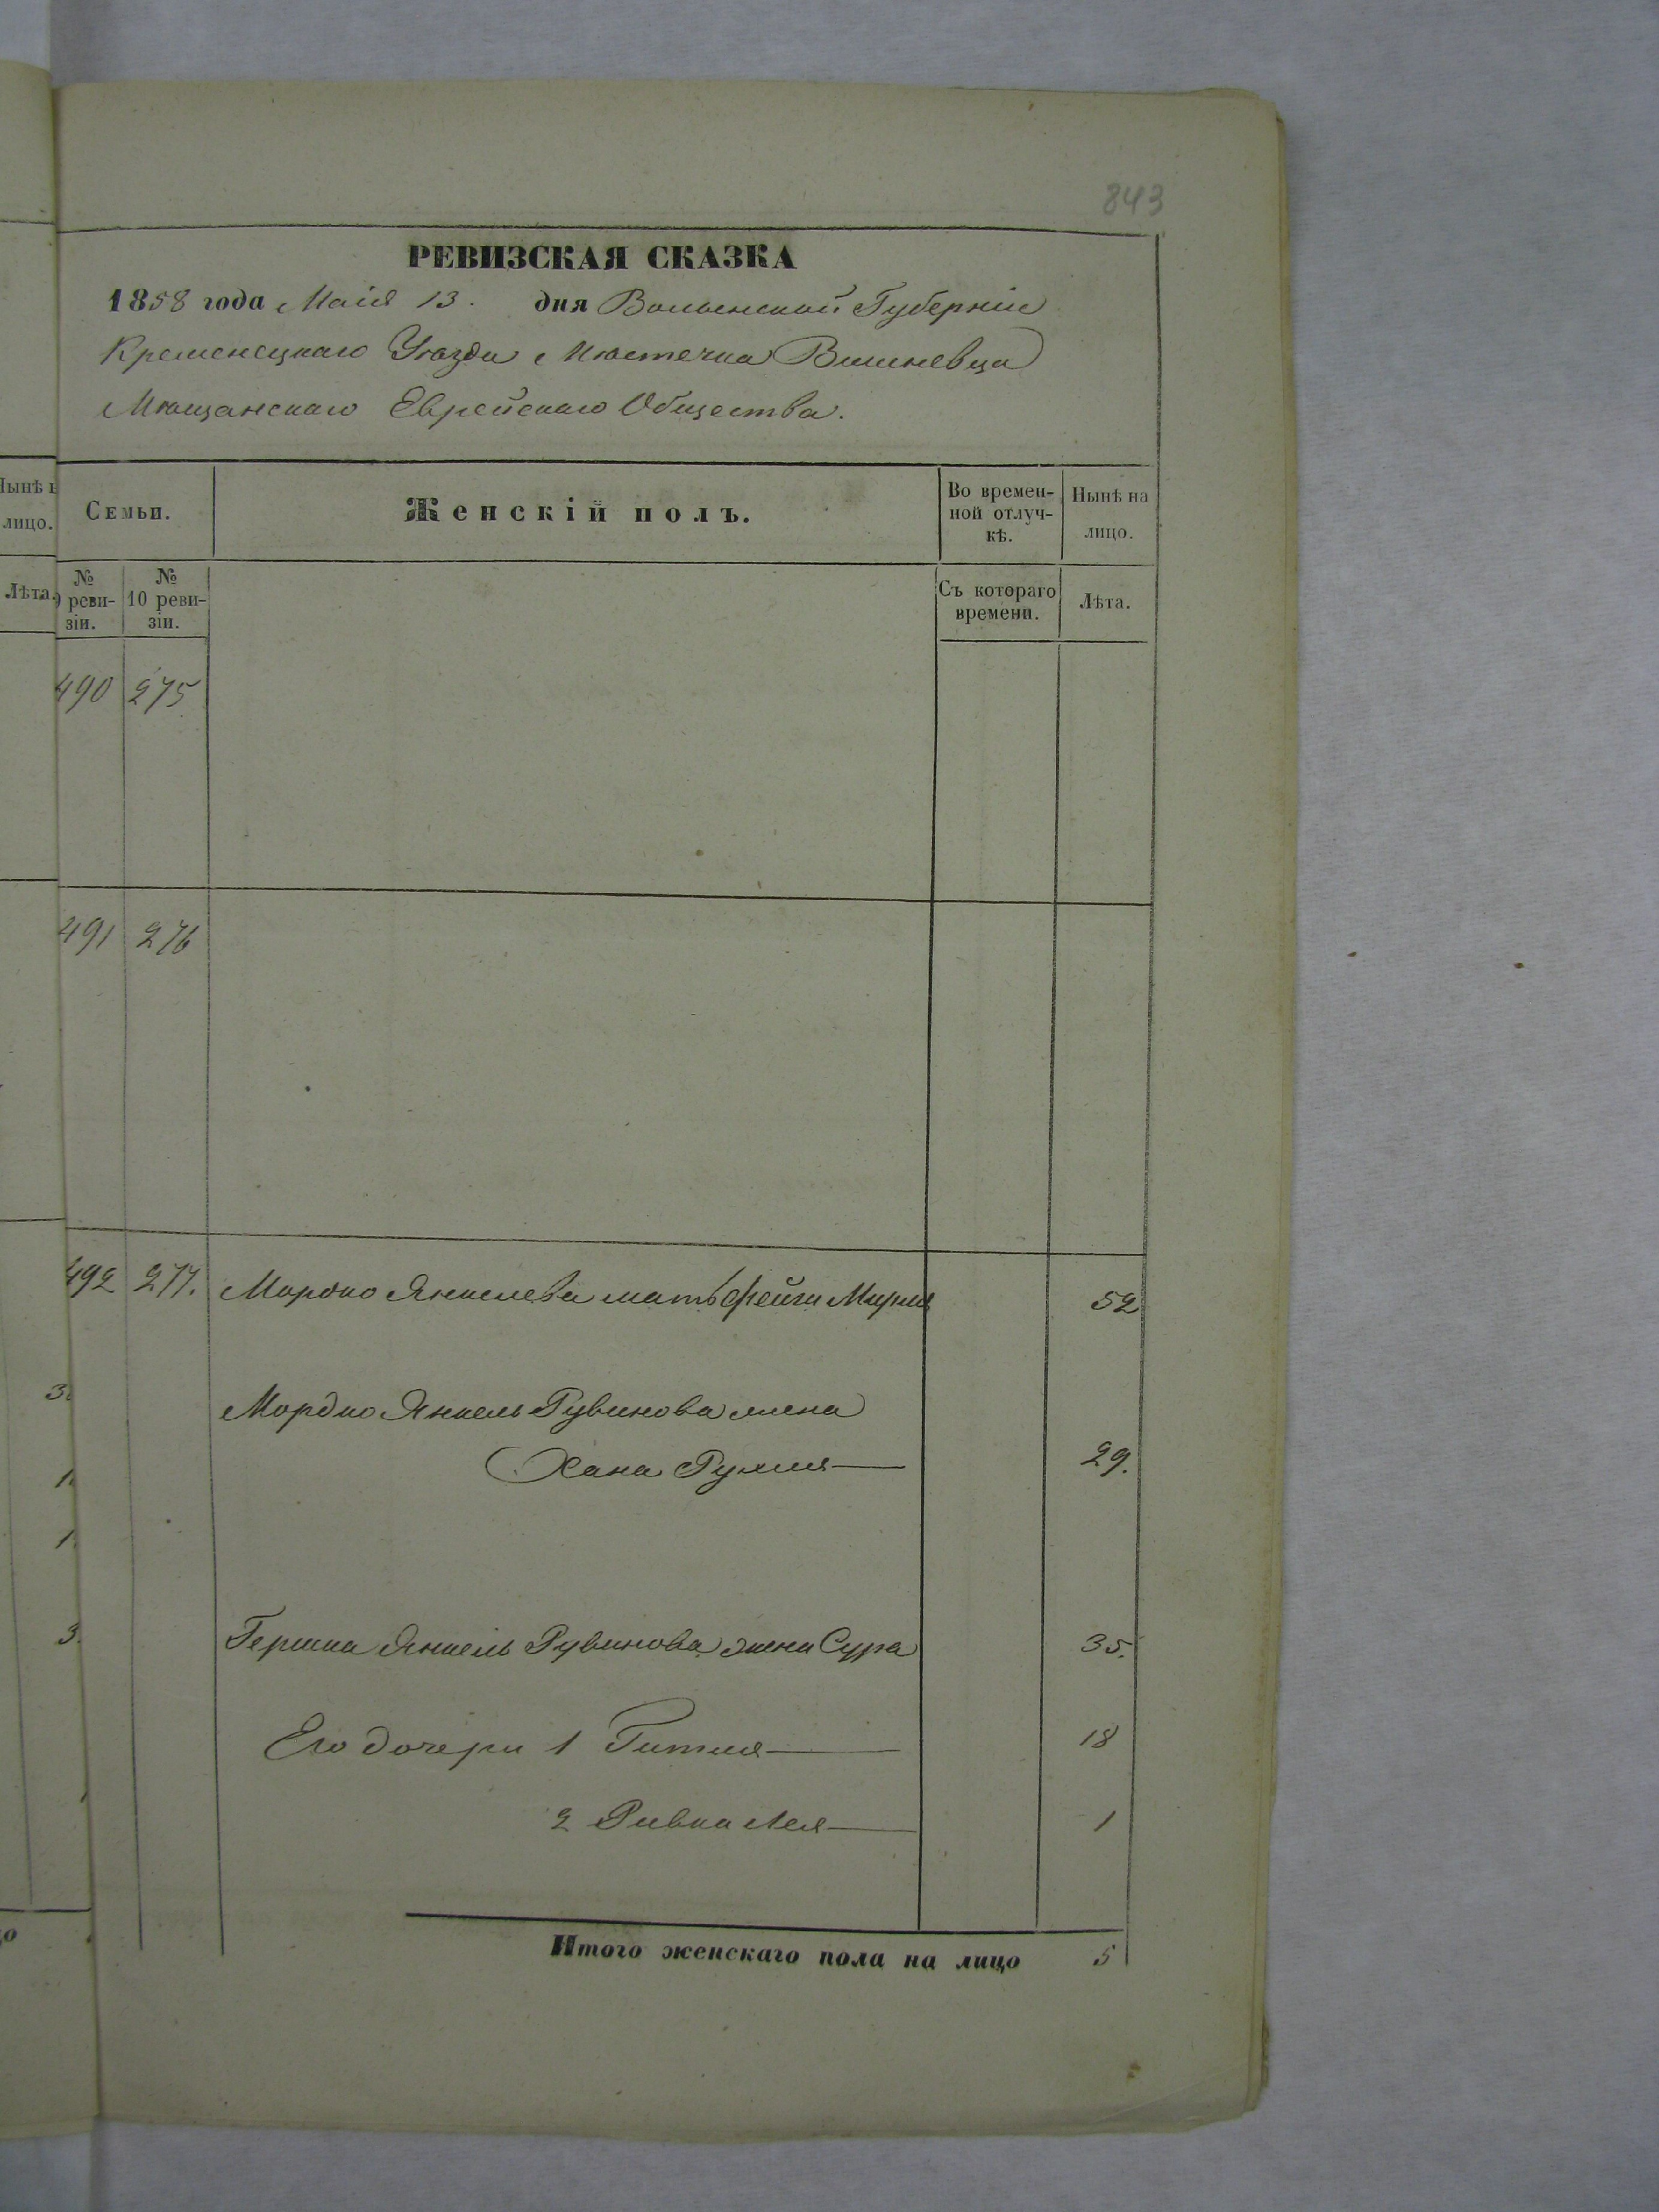 843
РЕВИЗСКАЯ СКАЗКА
1858 года Маія 13. дня Волынской Губерніи
Кременецкаго Уѣзда Мѣстечка Вишневца
Мѣщанскаго Еврейскаго Общества.
Нынѣ
лицо.
Лѣта.
Семьи.
Женскій полъ.
Во времен-
ной отлуч-
кѣ.
Нынѣ на
лицо.
№
реви-
зіи.
№
10 реви-
зіи.
Съ котораго
времени.
Лѣта.
490 275
491 276
492 277. Мордко Янкелева мать Фейга Мирля 52
3.
Мордко Янкель Рувинова жена
Хана Рухля 29.
1.
1.
3.
Гершка Янкель Рувинова жена Сура 35.
Его дочери 1 Гитля 18
2 Ривка Лея 1
Итого женскаго пола на лицо 5